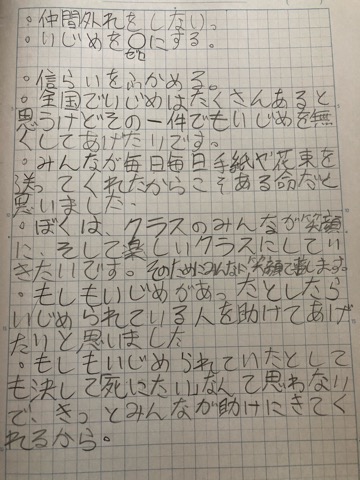 ・仲間外れをしない。
・いじめを〇にする。
ゼロ
・信らいをふかめる。
・全国でいじめはたくさんあると
思うけどその一件でもいじめを無
くしてあげたいです。
・みんなが毎日毎日手紙や花束を
送ってくれたからこそある命だと
思いました。
・ぼくは、クラスのみんなが笑顔
に、そして楽しいクラスにしてい
きたいです。そのためにみんなに笑顔で接します。
・もしもいじめがあったとしたら
いじめられている人を助けてあげ
たいと思いました
・もしもいじめられていたとして
も決して死にたいなんて思わない
で、きっとみんなが助けにきてく
れるから。